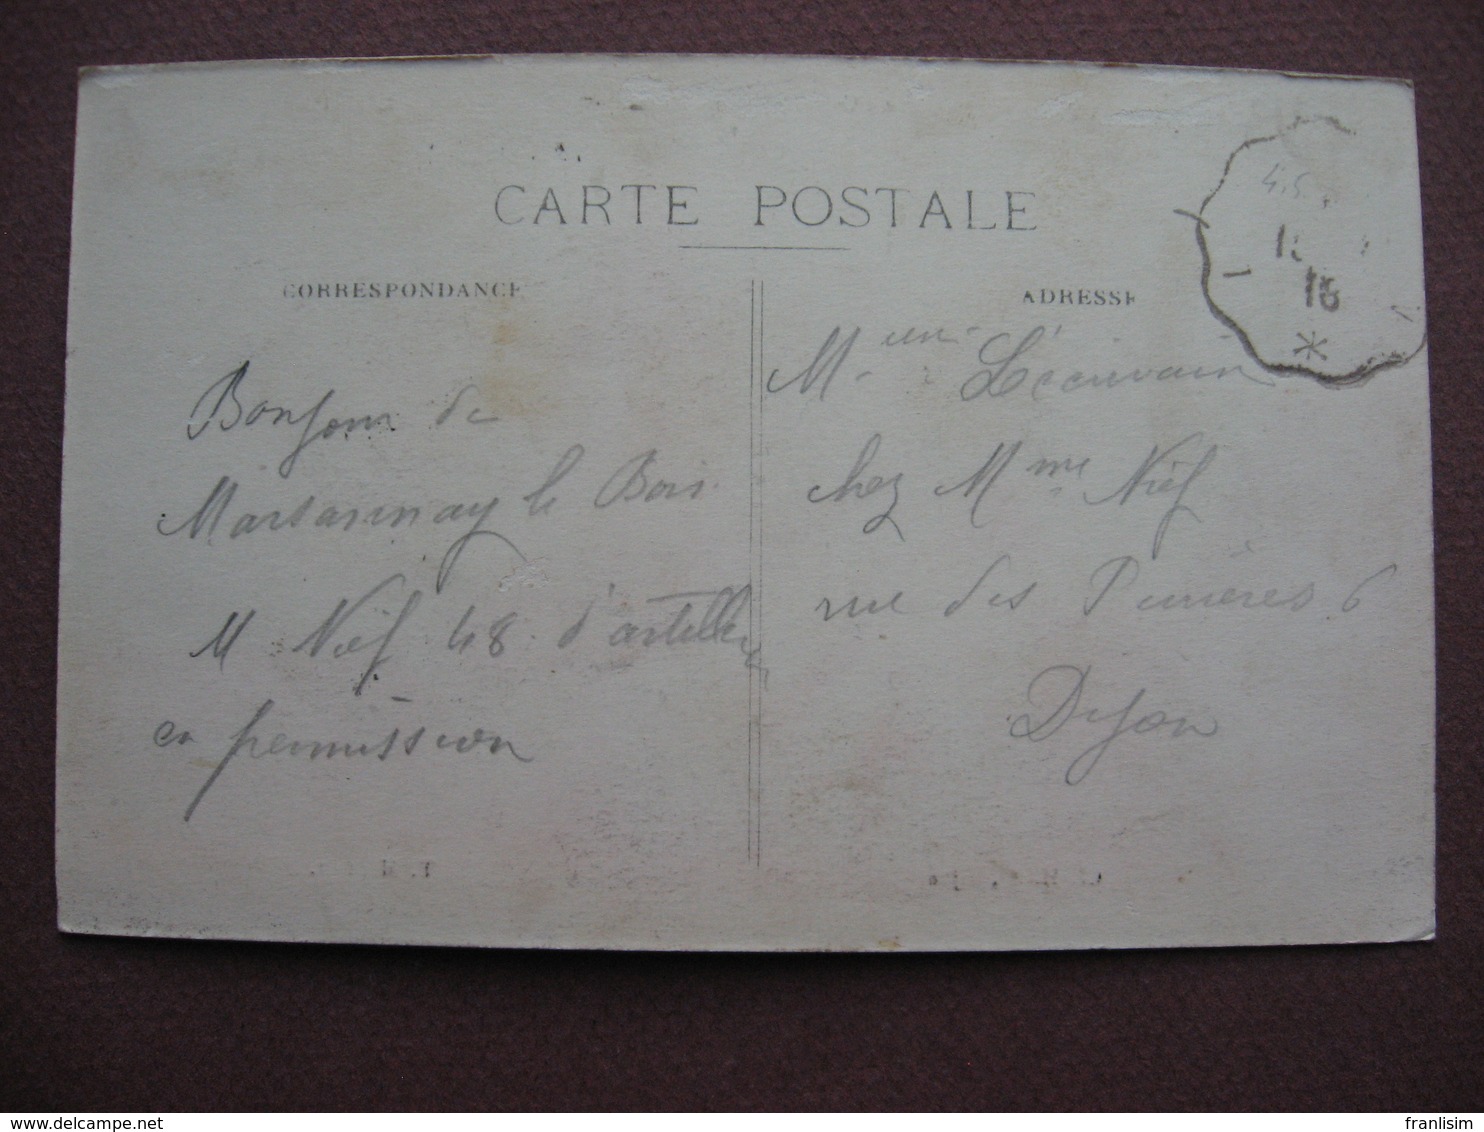 CARTE POSTALE
CORRESPONDANCE
ADRESSE
Bonjour de
Marsannay le Bois
M Nief 48 d'artillerie
en permission
Lécrivain
chez Mme Nief
rue des Perrières 6
Dijon
delcampe.net
franlisim